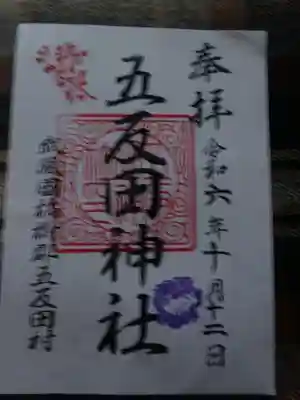 奉拝
令和六年十月十二日
五反田神社
武蔵国橘樹郡五反田村